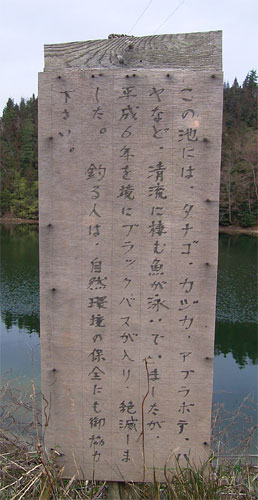 この池には、タナゴ、カジカ、アブラボテ、ハ
ヤなど、清流に棲む魚が泳いでいましたが、
平成6年を境にブラックバスが入り、絶滅しま
した。 釣る人は、自然環境の保全にも御協力
下さい。